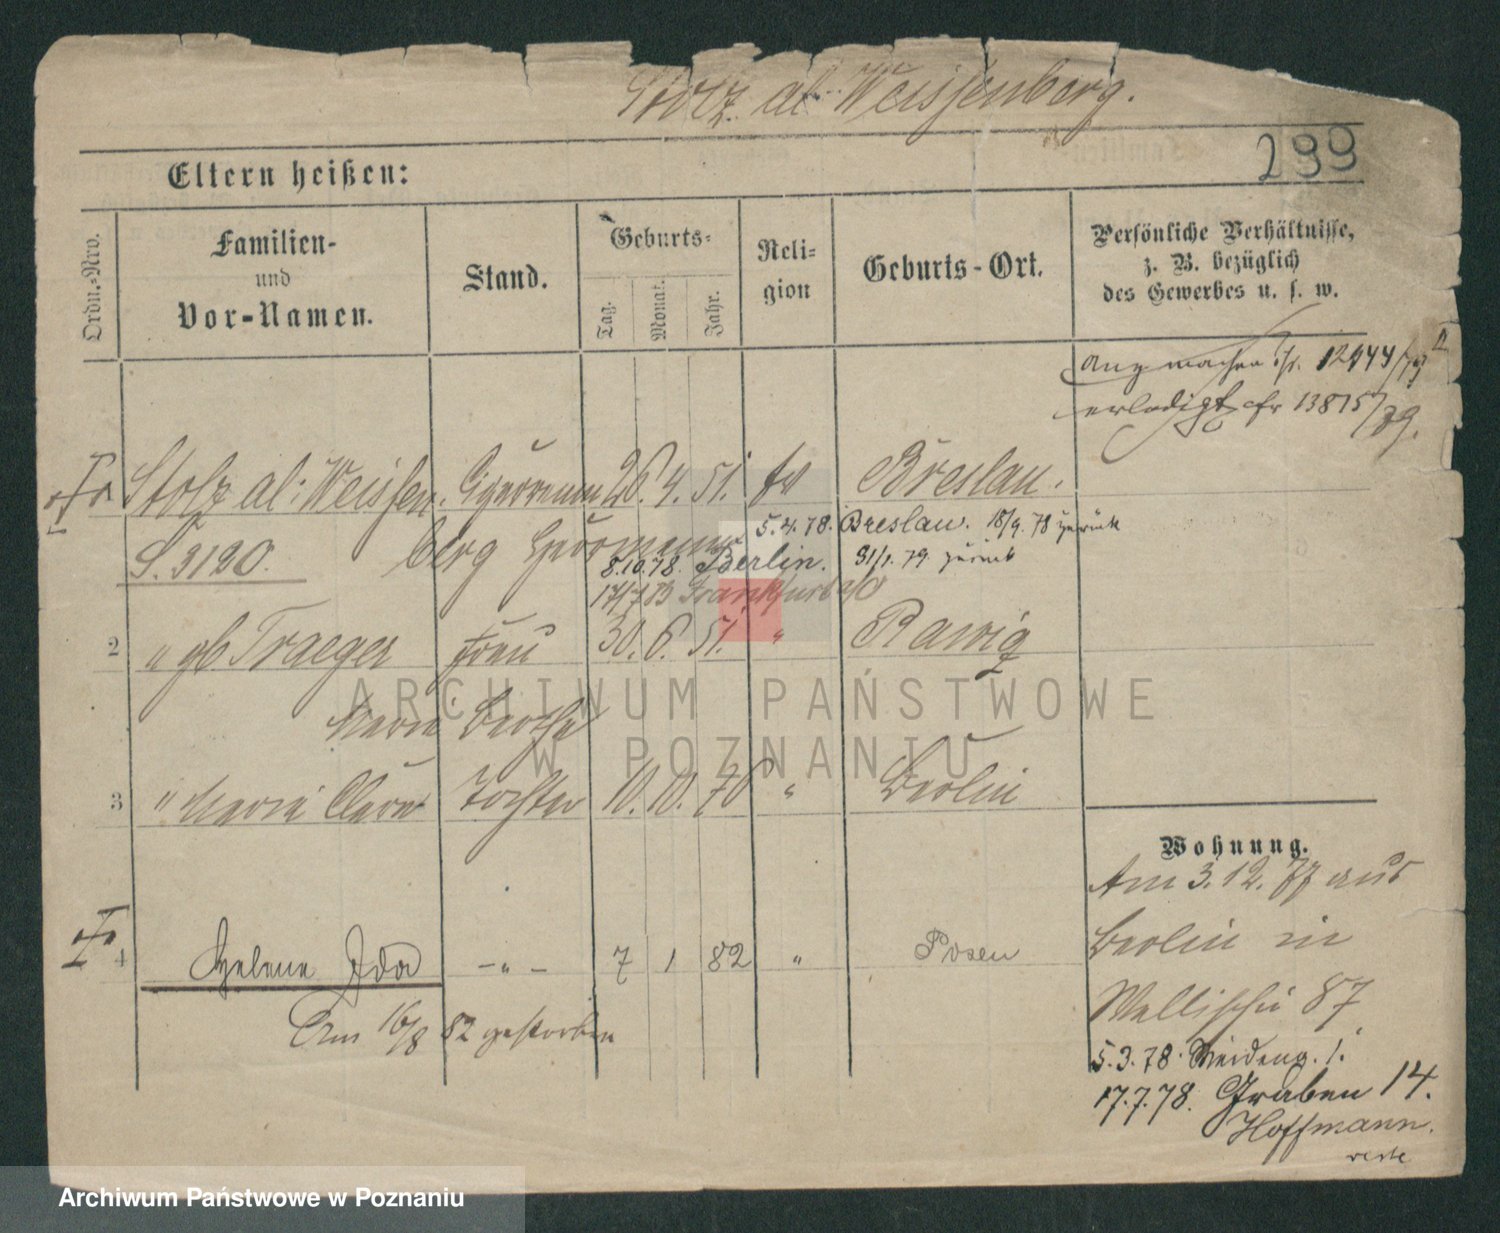 Stolz al. Weissenberg.
299
Eltern heißen:
Ordn.-Nro.
Familien-
und
Vor-Namen.
Stand.
Geburts-
Tag.
Monat.
Jahr.
Reli-
gion
Geburts-Ort.
Persönliche Verhältnisse,
z. B. bezüglich
des Gewerbes u. s. w.
12944/79
erledigt cfr 13875/79.
Stolz al: Weissen- 26. 4. 51. Breslau.
berg Herrmann
5.4.78. Breslau. 18/9. 78 zurück
S. 3120.
8.10.78. Berlin. 31/1. 79. zurück
17/7 83 Frankfurt a/O
2 " gb Traeger Frau 30. 6. 51. " Rawicz
Marie Bertha
3 " Marie Clara Tochter 10. 10. 76 " Berlin
Wohnung.
Am 3.12.77 aus
Berlin in
Wallischei 87
5.3.78. Weideng. 1.
17.7.78. Graben 14.
Hoffmann.
4 Helene Ida -"- 7 1 82 " Posen
Am 16/8 82 gestorben
ARCHIWUM PAŃSTWOWE
W POZNANIU
Archiwum Państwowe w Poznaniu